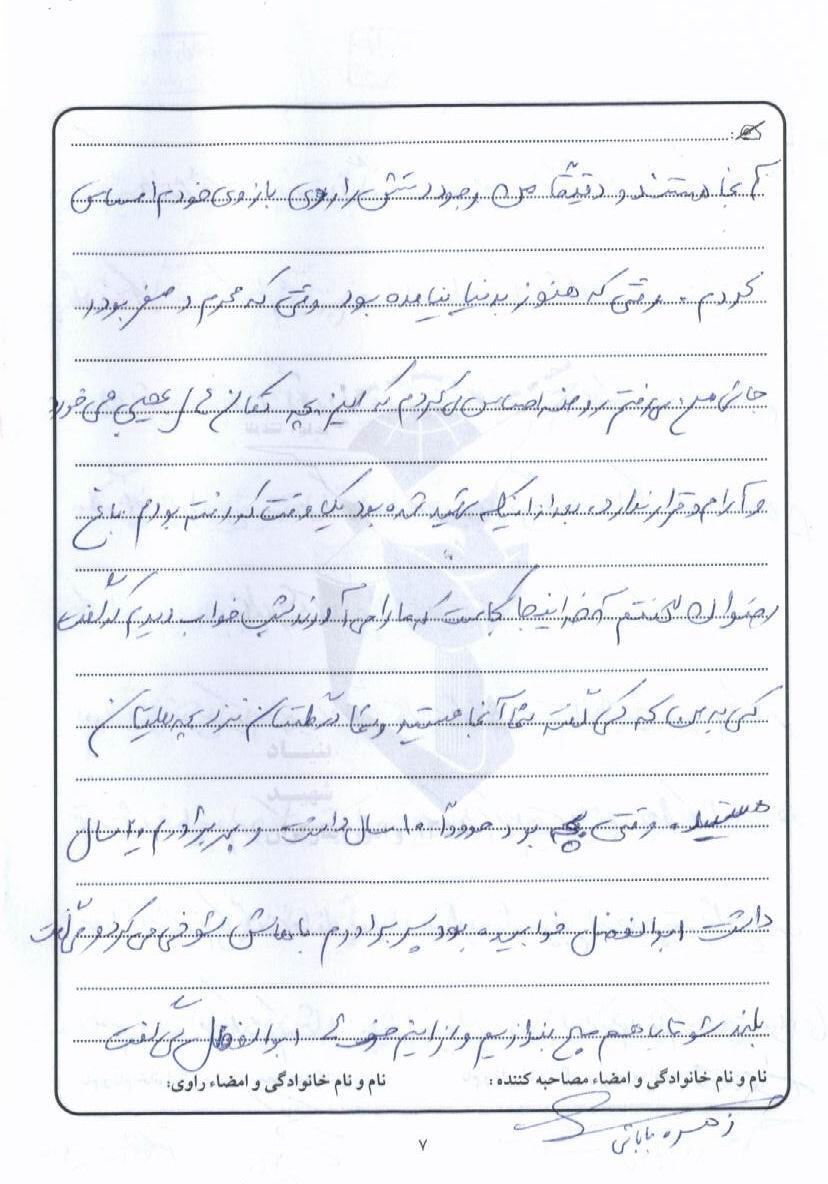 آنجا هستند و دقیقاً من وجود دستش را روی بازوی خودم احساس
کردم. وقتی که هنوز بدنیا نیامده بود وقتی که محرم و صفر بود در
جائی می رفتم روضه احساس می کردم که این بچه تکان های عجیبی می خورد
و آرام و قرار ندارد، بعد از اینکه شهید شده بود یک وقت که رفته بودم باغ
رضوان گفتم آخه اینجا کجاست که ما را می آورند شب خواب دیدم که گفت
کی به من که کی گفته شما آنجا هستید و شما نزد بچه هایتان
هستید. وقتی بچه بود حدوداً ۱۰ سال داشت و پسر برادرم ۲۰ سال
داشت ابوالفضل خوابیده بود پسر برادرم باهاش شوخی می کرد و می گفت
بلند شو تا با هم مچ بندازیم و از این حرف ها ابوالفضل می گفت
نام و نام خانوادگی و امضاء مصاحبه کننده :
نام و نام خانوادگی و امضاء راوی:
زهره بابائی
۷
بنیاد
شهید